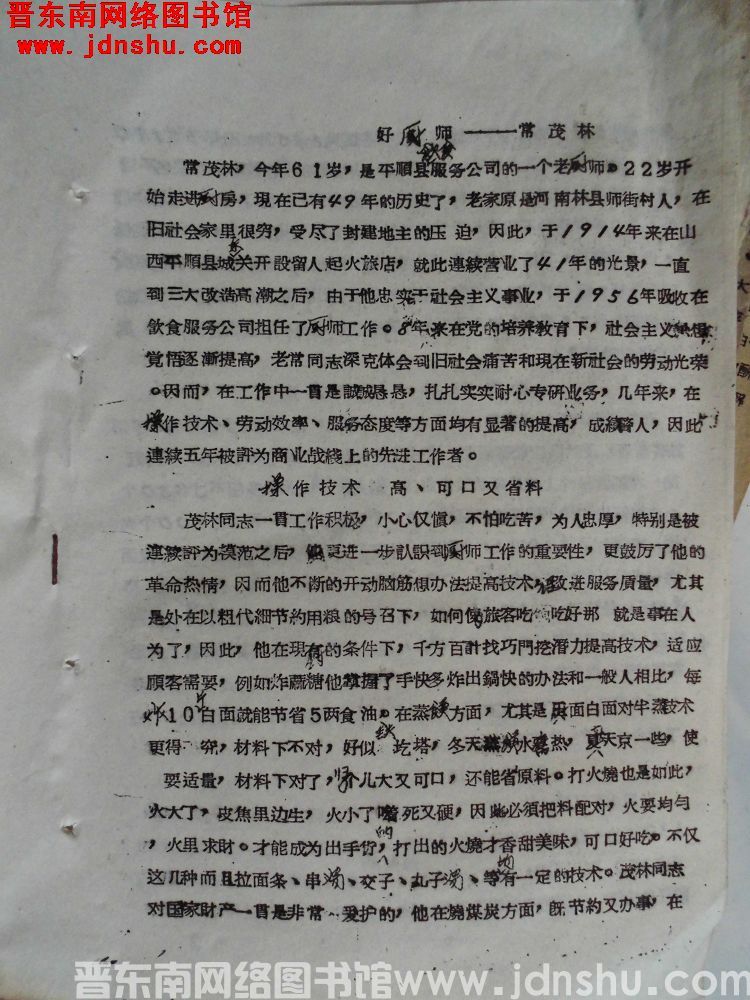 晋东南网络图书馆
www.jdnshu.com
好厨师——常茂林
常茂林，今年61岁，是平順县飲食服务公司的一个老厨师。22岁开
始走进厨房，現在已有49年的历史了，老家原是河南林县师街村人，在
旧社会家里很穷，受尽了封建地主的压 迫，因此，于1914年来在山
西平順县城东关开設留人起火旅店，就此連續营业了41年的光景，一直
到三大改造高潮之后，由于他忠实于社会主义事业，于1956年吸收在
飲食服务公司担任了厨师工作。8年来在党的培养敎育下，社会主义
覚悟逐漸提高，老常同志深克体会到旧社会痛苦和現在新社会的劳动光荣
。因而，在工作中一貫是誠誠恳恳，扎扎实实耐心专研业务，几年来，在
操作技术、劳动效率、服务态度等方面均有显著的提高，成績香人，因此
連續五年被評为商业战綫上的先进工作者。
操作技术 高、可口又省料
茂林同志一貫工作积极，小心仅慎，不怕吃苦，为人忠厚，特别是被
連續評为模范之后，更进一步訃識到厨师工作的重要性，更鼓厉了他的
革命热情，因而他不断的开动脑筋想办法提高技术，改进服务质量，尤其
是处在以粗代細节約用粮的号召下，如何使旅客吃响吃好那 就是事在人
为了，因此，他在現有的条件下，千方百計找巧門挖潜力提高技术，适应
顧客需要，例如炸蔴糖他掌握了手快多炸出鍋快的办法和一般人相比，每
炸10斤白面就能节省5两食油。在蒸饃方面，尤其是豆面白面对半蒸技术
更得 究，材料下不对，好似 圪塔，冬天水热，夏天京一些，使
要适量，材料下对了，个儿大又可口，还能省原料。打火燒也是如此，
火大了，皮焦里边生，火小了死又硬，因此必須把料配对，火要均匀
，火里求財。才能成为出手的貨，打出的火燒才香甜美味，可口好吃。不仅
这几种而且拉面条、串湯、交子、丸子湯、等均有一定的技术。茂林同志
对国家財产一貫是非常 爱护的，他在燒煤炭方面，旣节約又办事，在
晋东南网络图书馆www.jdnshu.com